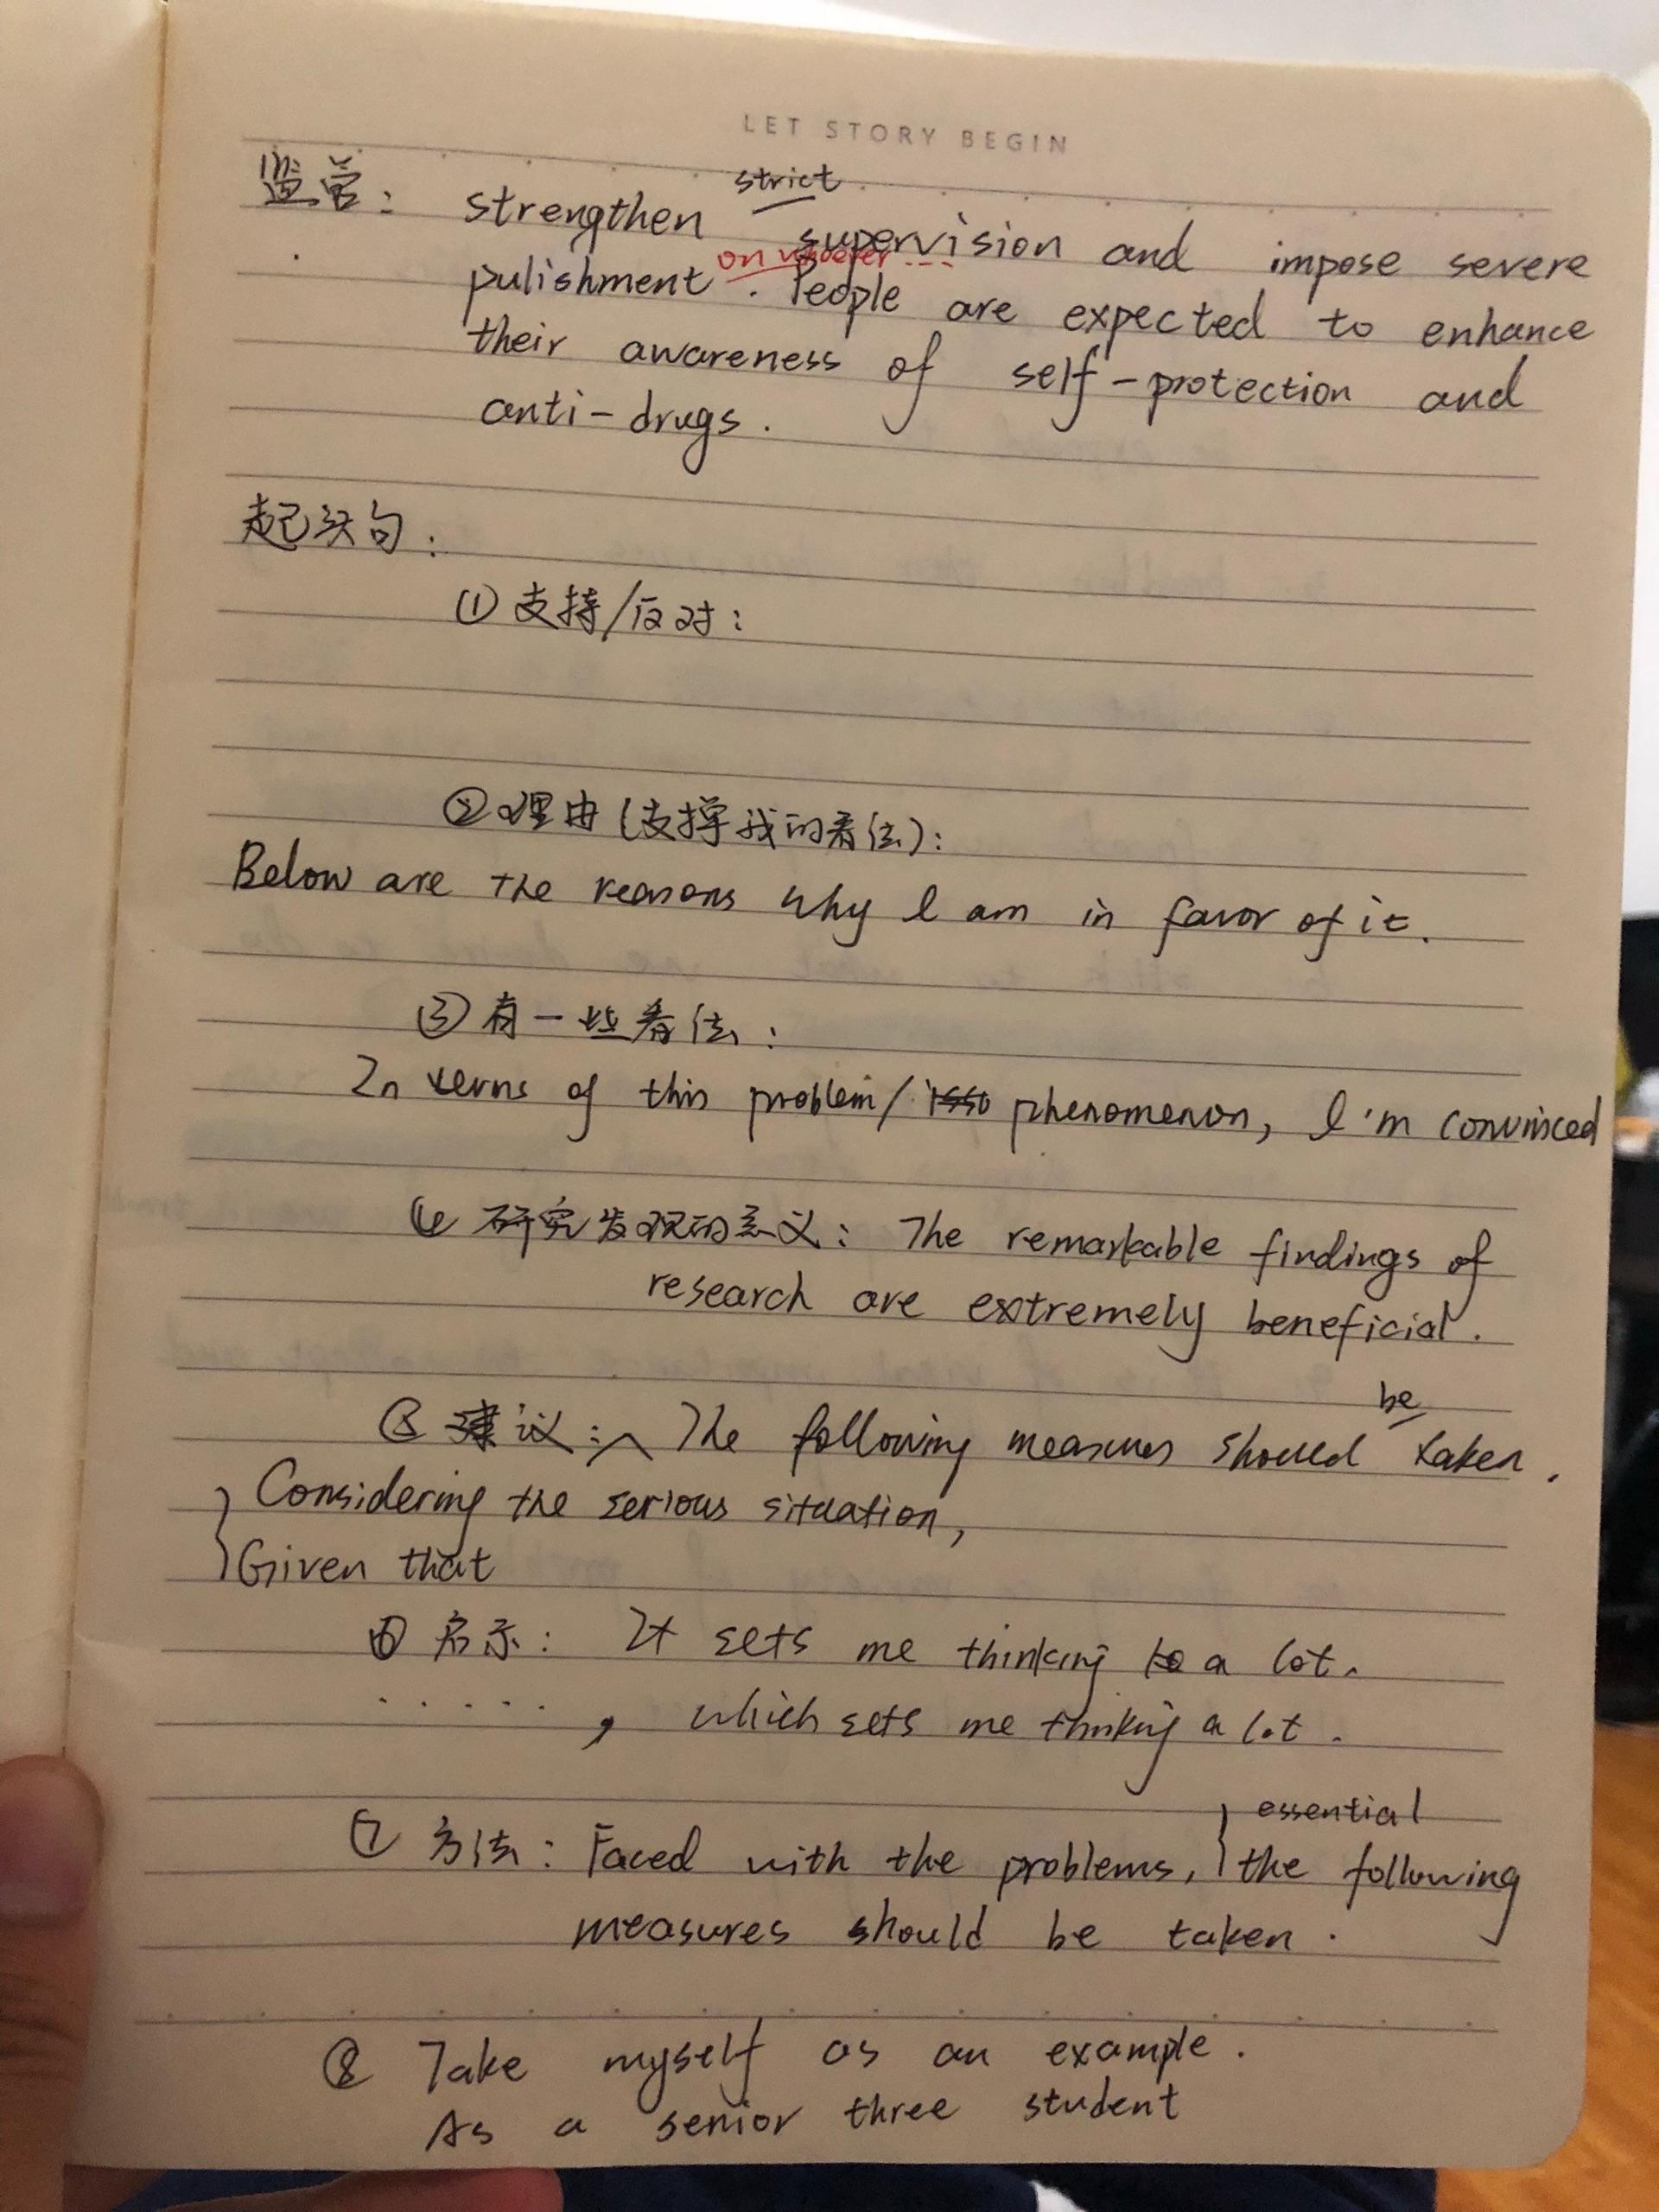 LET STORY BEGIN
监管: strengthen strict supervision and impose severe
pulishment on whoever .... People are expected to enhance
their awareness of self-protection and
anti-drugs.
起头句:
①支持/反对:
②理由(支撑我的看法):
Below are the reasons why I am in favor of it.
③有一些看法:
In terms of this problem/ phenomenon, I'm convinced
④研究发现的意义: The remarkable findings of
research are extremely beneficial.
⑤建议:^ The following measures should be taken.
Considering the serious situation,
Given that
⑥启示: It sets me thinking a lot.
......, which sets me thinking a lot.
essential
⑦方法: Faced with the problems, the following
measures should be taken.
⑧ Take myself as an example.
As a senior three student